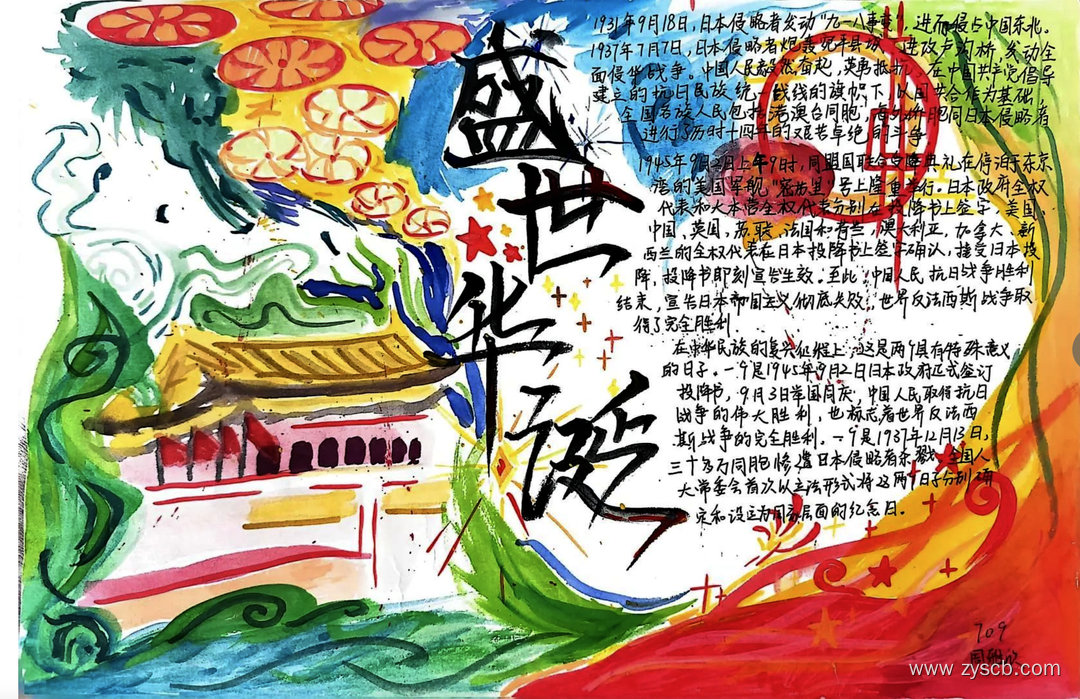 盛世华诞
1931年9月18日,日本侵略者发动"九一八事变",进而侵占中国东北。
1937年7月7日,日本侵略者炮轰宛平县城,进攻卢沟桥,发动全
面侵华战争。中国人民毅然奋起,英勇抵抗,在中国共产党倡导
建立的抗日民族统一线线的旗帜下,以国共合作为基础,
全国各族人民包括港澳台同胞,海外侨胞同日本侵略者
进行了历时十四年的艰苦卓绝的斗争
1945年9月2日上午9时,同盟国联合受降典礼在停泊于东京
湾的美国军舰"密苏里"号上隆重举行.日本政府全权
代表和大本营全权代表分别在投降书上签字,美国、
中国,英国,苏联,法国和荷兰,澳大利亚,加拿大、新
西兰的全权代表在日本投降书上签字确认,接受日本投
降,投降书即刻宣告生效。至此,中国人民抗日战争胜利
结束,宣告日本帝国主义彻底失败,世界反法西斯战争取
得了完全胜利
在中华民族的复兴征程上,这是两个具有特殊意义
的日子。一个是1945年9月2日日本政府正式签订
投降书,9月3日举国同庆,中国人民取得抗日
战争的伟大胜利,也标志着世界反法西
斯战争的完全胜利。一个是1937年12月13日,
三十多万同胞惨遭日本侵略者杀戮,全国人
大常委会首次以立法形式将这两个日子分别确
定和设立为国家层面的纪念日.
709
www.zyscb.com